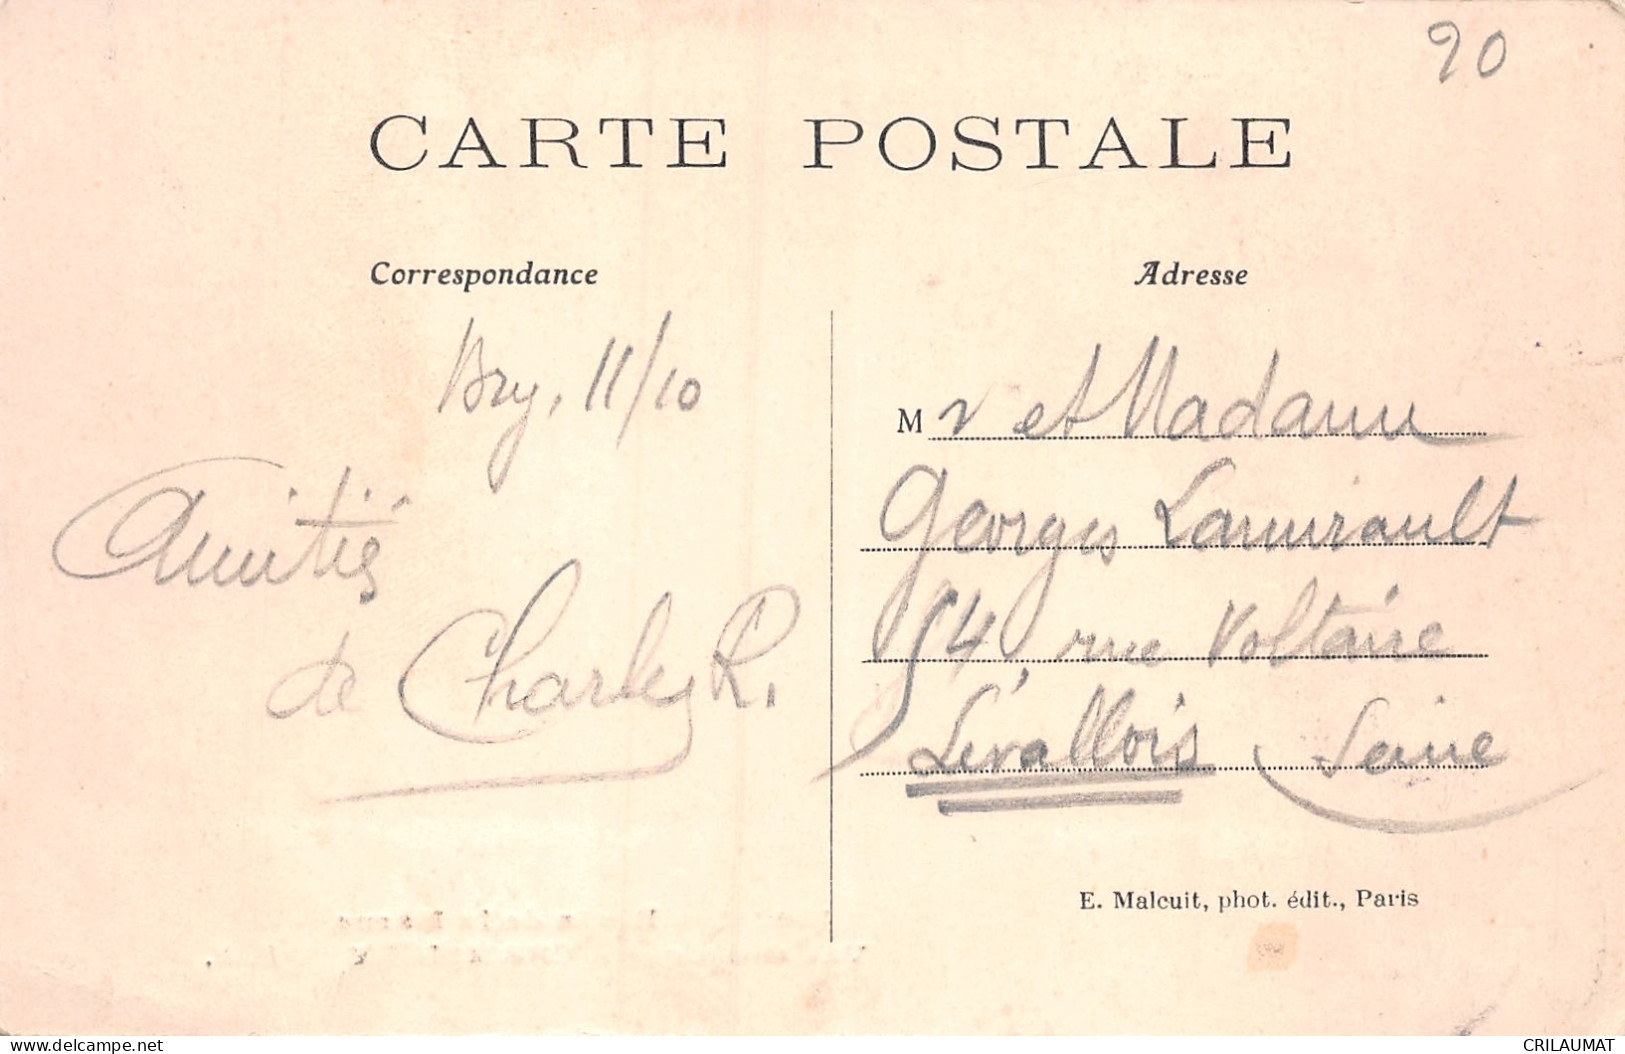 90
CARTE POSTALE
Correspondance
Adresse
Bry, 11/10
Amitiés
de Charles R.
Mr et Madame
Georges Lamirault
54 rue Voltaire
Levallois Seine
E. Malcuit, phot. édit., Paris
delcampe.net
CRILAUMAT